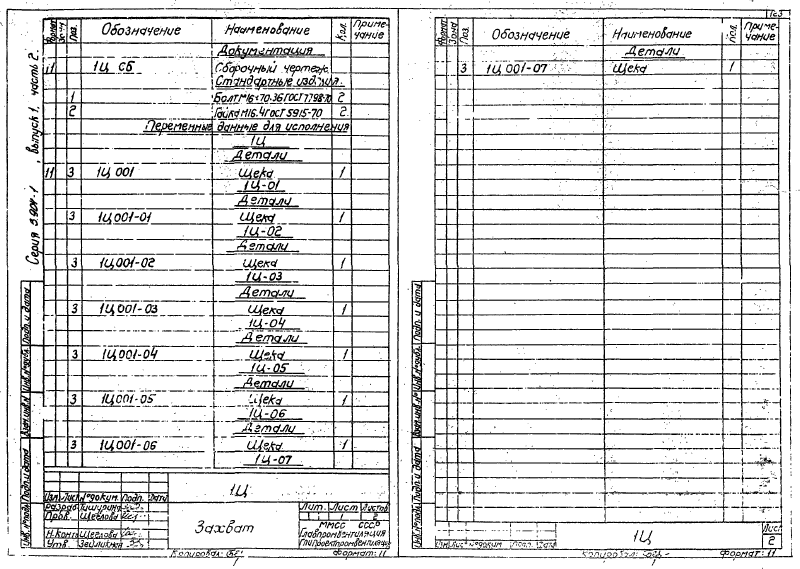 Серия 3.904-1, выпуск 1, часть 2.
Формат Зона Поз. Обозначение Наименование Кол. Приме-чание
Документация
11 1Ц СБ Сборочный чертеж
Стандартные изделия.
1 Болт М16×70.36 ГОСТ 7798-70 2
2 Гайка М16.4 ГОСТ 5915-70 2
Переменные данные для исполнения
1Ц
Детали
11 3 1Ц 001 Щека 1
1Ц-01
Детали
3 1Ц001-01 Щека 1
1Ц-02
Детали
3 1Ц001-02 Щека 1
1Ц-03
Детали
3 1Ц001-03 Щека 1
1Ц-04
Детали
3 1Ц001-04 Щека 1
1Ц-05
Детали
3 1Ц001-05 Щека 1
1Ц-06
Детали
3 1Ц001-06 Щека 1
1Ц-07
Инв. № подл. Подп. и дата Взам. инв. № Инв. № дубл. Подп. и дата
1Ц
Изм. Лист № докум. Подп. Дата
Разраб. Тишурина
Пров. Щеглова
Н.Конт. Щеглова
Утв.
Захват
Лит. Лист Листов
1 2
ММСС СССР
Главпромвентиляция
Гипроектпромвентиляция
Копировал: Формат: 11
Формат Зона Поз. Обозначение Наименование Кол. Приме-чание
Детали
3 1Ц 001-07 Щека 1
Инв. № подл. Подп. и дата Взам. инв. № Инв. № дубл. Подп. и дата
Изм. Лист № докум. Подп. Дата
1Ц
Лист
2
Копировал: Формат: 11